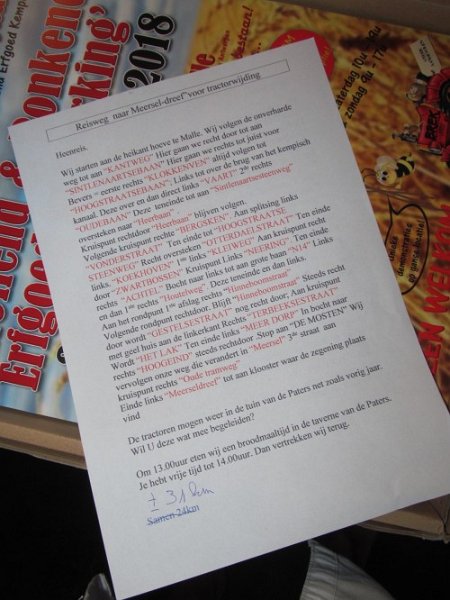 Erfgoed Kemp
2018
Reisweg naar Meersel-dreef" voor tractorwijding
Heenreis.
Wij starten aan de heikant hoeve te Malle. Wij volgen de onverharde
weg tot aan "KANTWEG" Hier gaan we recht door tot aan
"SINTLENAARTSEBAAN" Hier gaan we rechts tot juist voor
Bevers = eerste rechts "KLOKKESVEN" altijd volgen tot
"HOOGSTRAATSEBAAN"; Links tot over de brug van het kempisch
kanaal. Deze over en dan direct links "VAART" 2de rechts
"OUDEBAAN" Deze uiteinde tot aan "Sintlenaartsesteenweg"
oversteken naar "Heerbaan".
Kruispunt rechtdoor "Heerbaan" blijven volgen.
Volgende kruispunt rechts "BERGSKEN". Aan splitsing links
"VONDERSTRAAT" Ten einde tot "HOOGSTRAATSE
STEENWEG" Recht oversteken "OTTERDAELSTRAAT" Ten einde
links. "KOEKHOVEN" 1ste links "KLEIWEG" Aan kruispunt recht
door "ZWARTBOSSEN" Kruispunt Links "NEERING" Ten einde
rechts "ACHTEL" Bocht naar links tot aan grote baan "N14" Links
en dan 1ste rechts "Houtelweg" Deze teneinde en dan links.
Aan het rondpunt 1ste afslag rechts "Minneboomstraat" Steeds recht
Volgende rondpunt rechtdoor. Blijft "Minneboomstraat"
door wordt "GESTELSESTRAAT" nog recht door; Aan kruispunt
met geel huis aan de linkerkant Rechts "TERBEEKSESTRAAT"
Wordt "HET LAK" Ten einde links "MEER DORP" In bocht naar
rechts "HOOGEIND" steeds rechtdoor .Stop aan "DE MOSTEN" Wij
vervolgen onze weg die verandert in "Meersel" 3de straat aan
kruispunt rechts "Oude tramweg"
Einde links "Meerseldreef" tot aan klooster waar de zegening plaats
vind
De tractoren mogen weer in de tuin van de Paters net zoals vorig jaar.
Wil U deze wat mee begeleiden?
Om 13.00uur eten wij een broodmaaltijd in de taverne van de Paters.
Je hebt vrije tijd tot 14.00uur. Dan vertrekken wij terug.
± 31 km
Samen 24km